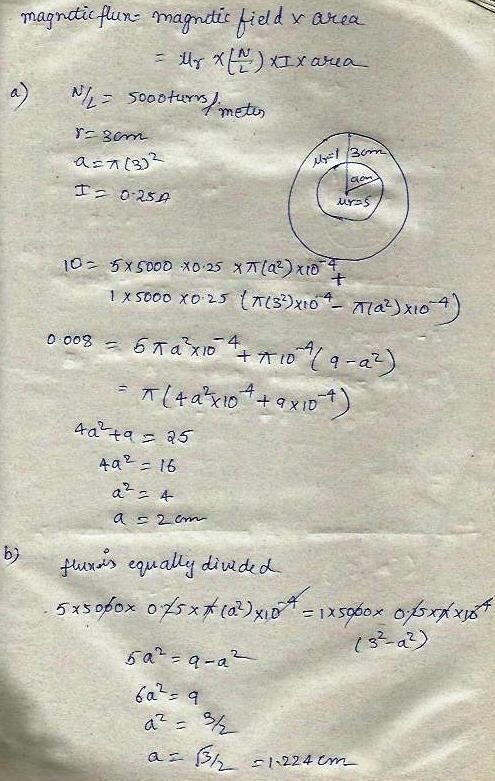 magnetic flux = magnetic field x area
= μr x (N/L) x I x area
a) N/L = 5000 turns/meter
r = 3cm
a = π(3)²
I = 0.25A
μr=1 3cm
acm
μr=5
10 = 5 x 5000 x 0.25 x π(a²) x 10⁻⁴ +
1 x 5000 x 0.25 (π(3²) x 10⁻⁴ - π(a²) x 10⁻⁴)
0.008 = 5πa² x 10⁻⁴ + π10⁻⁴(9 - a²)
= π(4a² x 10⁻⁴ + 9 x 10⁻⁴)
4a² + 9 = 25
4a² = 16
a² = 4
a = 2 cm
b) flux is equally divided
5 x 5000 x 0.25 x π(a²) x 10⁻⁴ = 1 x 5000 x 0.25 x π x 10⁻⁴
(3² - a²)
5a² = 9 - a²
6a² = 9
a² = 3/2
a = √3/2 = 1.224 cm